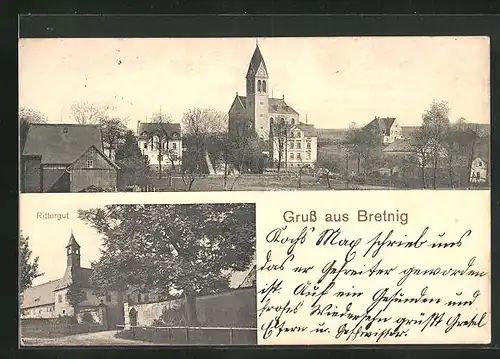 Rittergut
Gruß aus Bretnig
Koch's Max schrieb uns
das er Gefreiter geworden
ist. Auf ein Gesunden und
frohes Wiedersehn grüßt
Eltern u. Geschwister.